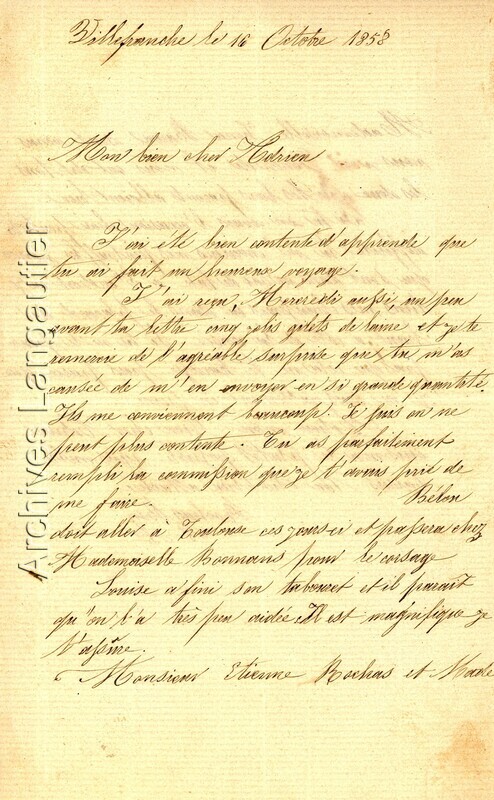 Villefranche le 16 Octobre 1858
Mon bien cher Adrien
J'ai été bien contente d'apprendre que
tu ai fait un heureux voyage.
J'ai reçu, Mercredi aussi, un peu
avant ta lettre cinq jolis gilets de laine et je te
remercie de l'agréable surprise que tu m'as
causée de m'en envoyer en si grande quantité.
Ils me conviennent beaucoup. Je suis on ne
peut plus contente. Tu as parfaitement
rempli la commission que je t'avais prié de
me faire. Bélou
doit aller à Toulouse ces jours-ci et passera chez
Mademoiselle Bonnans pour le corsage
Louise a fini son tabouret et il parait
qu'on l'a très peu aidée. Il est magnifique je
t'assure.
Monsieur Etienne Rochas et Made
Archives Langautier